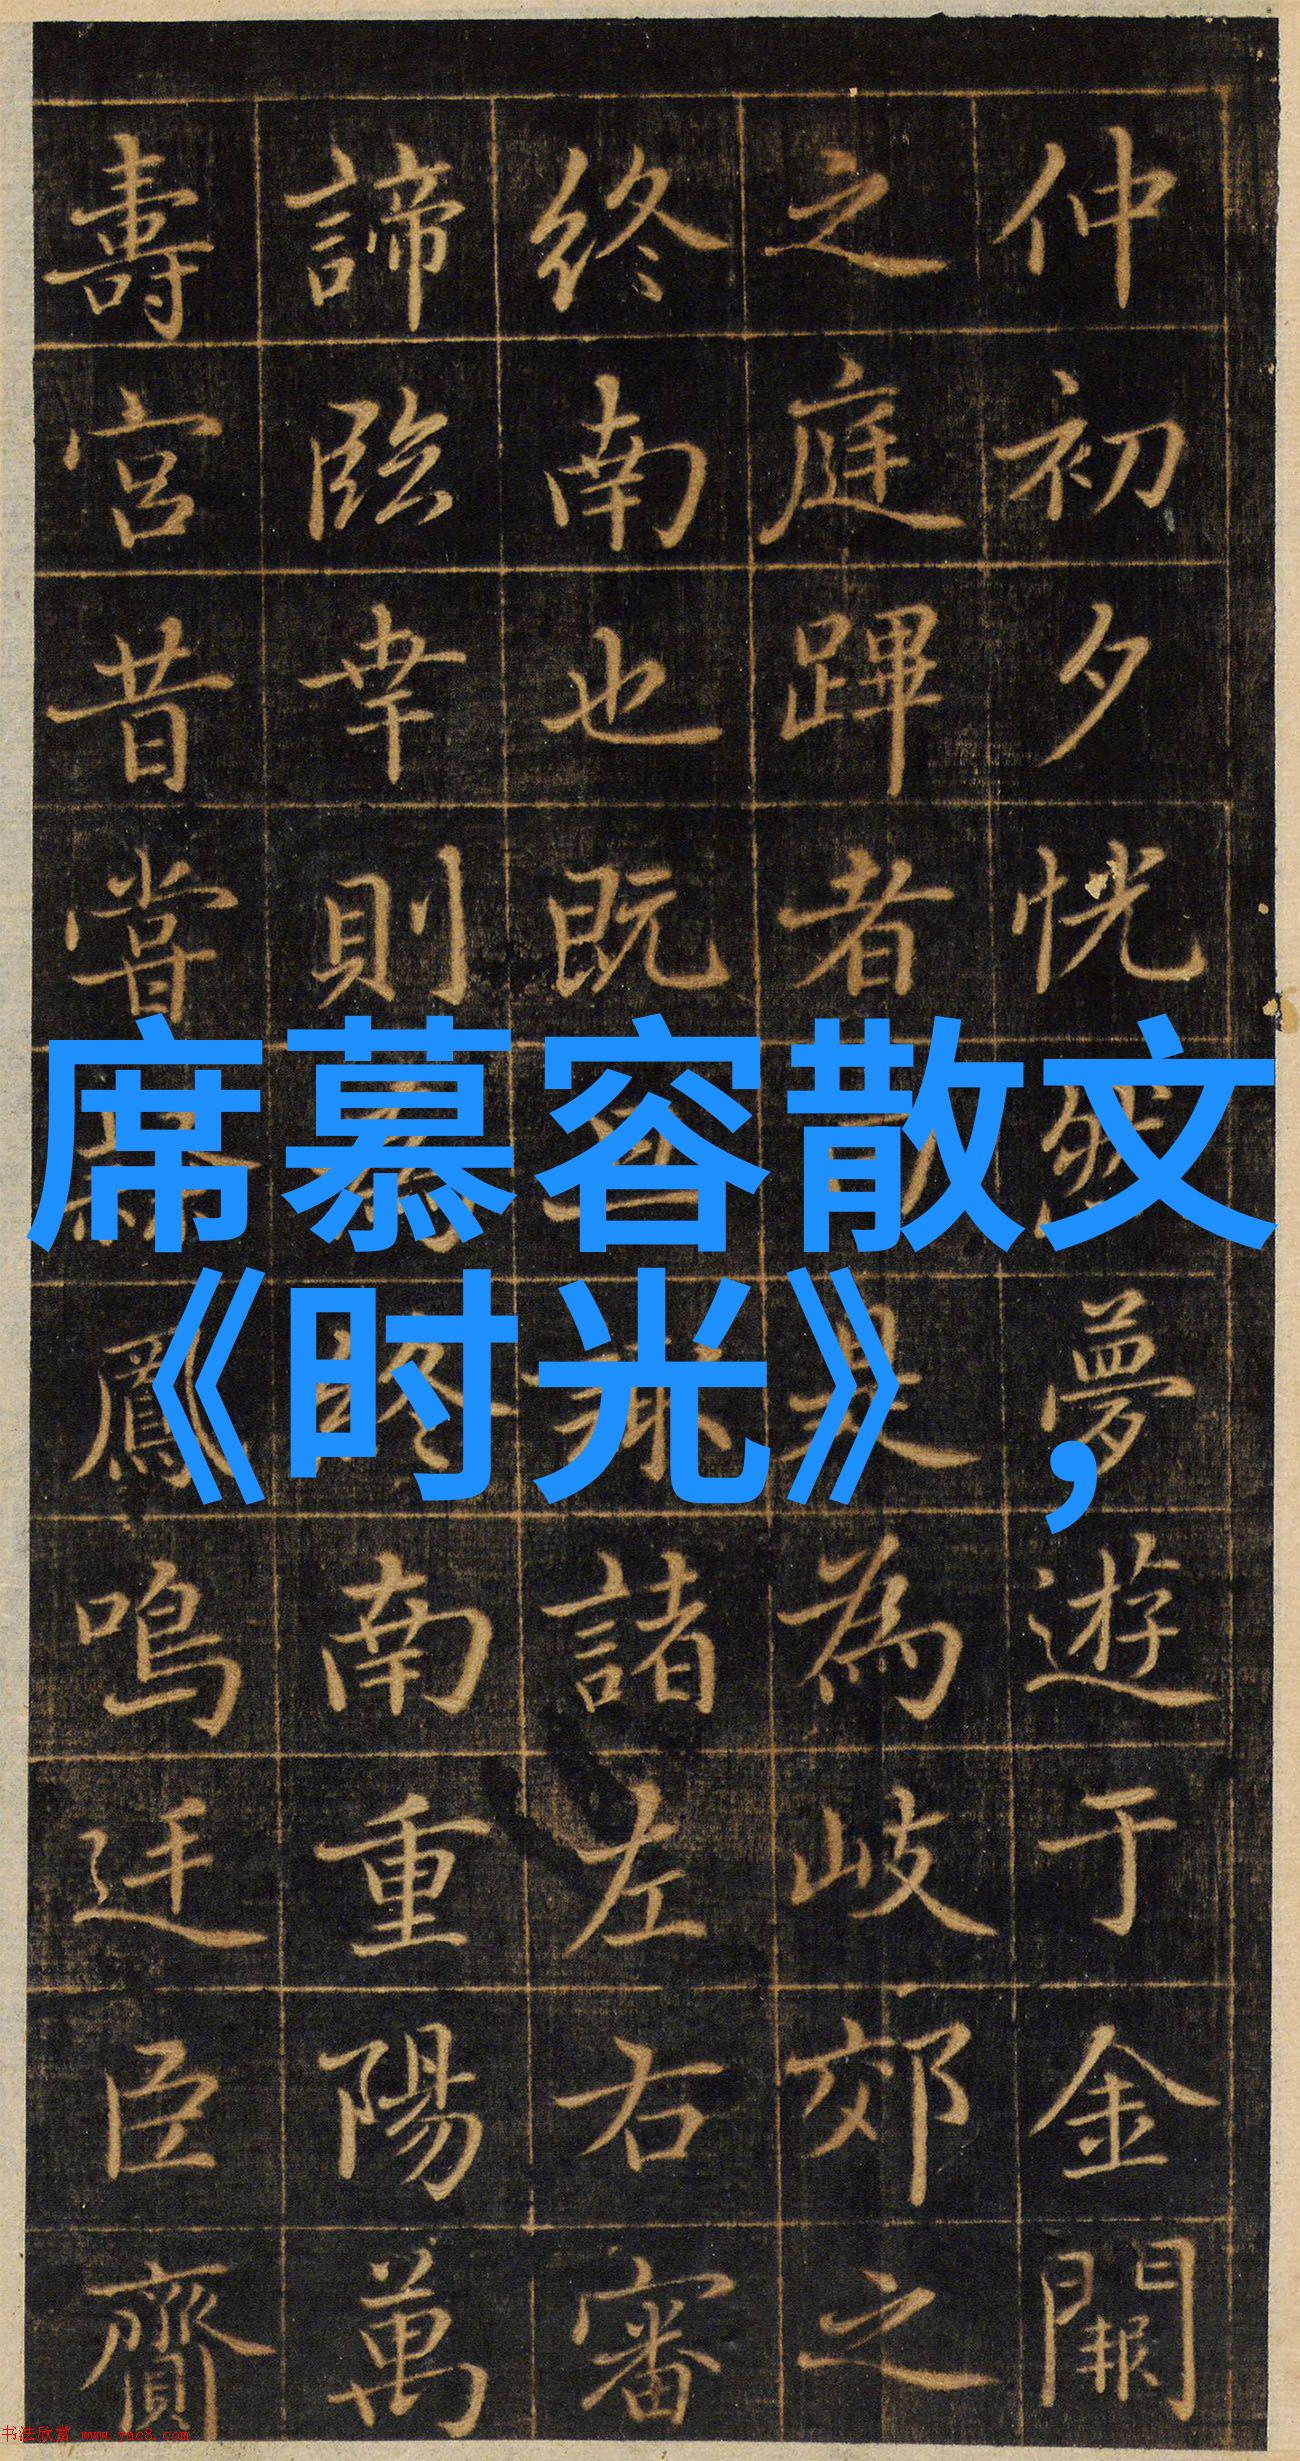 仲初夕恍然夢遊于金闕
之庭蹕者是為岐郊之
終南也既諸左右審
諦臨幸則終南重陽萬
壽宮昔嘗鳳鳴廷臣齎
席慕容散文
《时光》，
书法欣赏 www.yac8.com